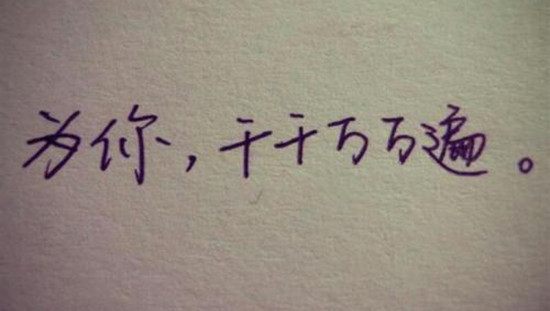 为你，千千万万遍。